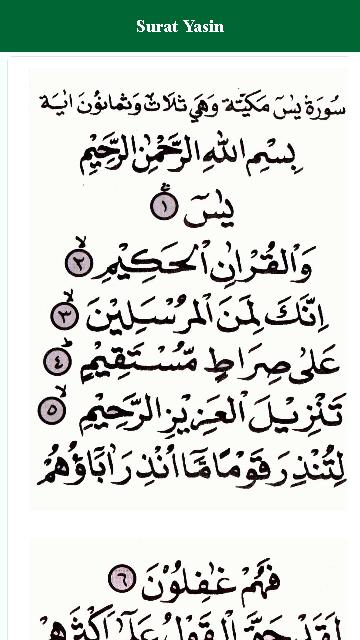 Surat Yasin
سُورَةُ يٰسٓ مَكِّيَّةٌ وَهِيَ ثَلَاثٌ وَثَمَانُوْنَ اٰيَةً
بِسْمِ اللهِ الرَّحْمٰنِ الرَّحِيْمِ
يٰسٓ ۚ ١
وَالْقُرْاٰنِ الْحَكِيْمِ ۙ ٢
اِنَّكَ لَمِنَ الْمُرْسَلِيْنَ ۙ ٣
عَلٰى صِرَاطٍ مُّسْتَقِيْمٍ ۗ ٤
تَنْزِيْلَ الْعَزِيْزِ الرَّحِيْمِ ۙ ٥
لِتُنْذِرَ قَوْمًا مَّآ اُنْذِرَ اٰبَاؤُهُمْ
فَهُمْ غٰفِلُوْنَ ٦
لَقَدْ حَقَّ الْقَوْلُ عَلٰٓى اَكْثَرِهِمْ